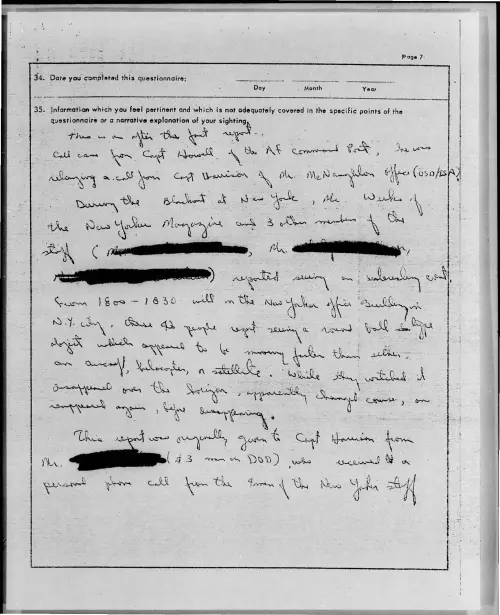 Page 7
34. Date you completed this questionnaire:
Day Month Year
35. Information which you feel pertinent and which is not adequately covered in the specific points of the
questionnaire or a narrative explanation of your sighting.
This is an after the fact report.
Call came from Capt Howell of the AF Command Post, he was
relaying a call from Capt Harrison of Mr. McNaughton office (OSD/ISA)
During the Blackout at New York, Mr. Weekes of
the New Yorker Magazine and 3 other members of the
staff ( , Mr. ,
) reported seeing an interesting event.
From 1800 - 1830 while in the New Yorker office Building in
N.Y. City, these 4 people report seeing a round ball type
object which appeared to be moving faster than either
an aircraft, helicopter, or satellite. While they watched it
disappeared over the horizon, apparently changed course, and
reappeared again, before disappearing.
This report was originally given to Capt Harrison from
Mr. (#3 man in DOD), who received it a
personal phone call from the from of the New Yorker staff